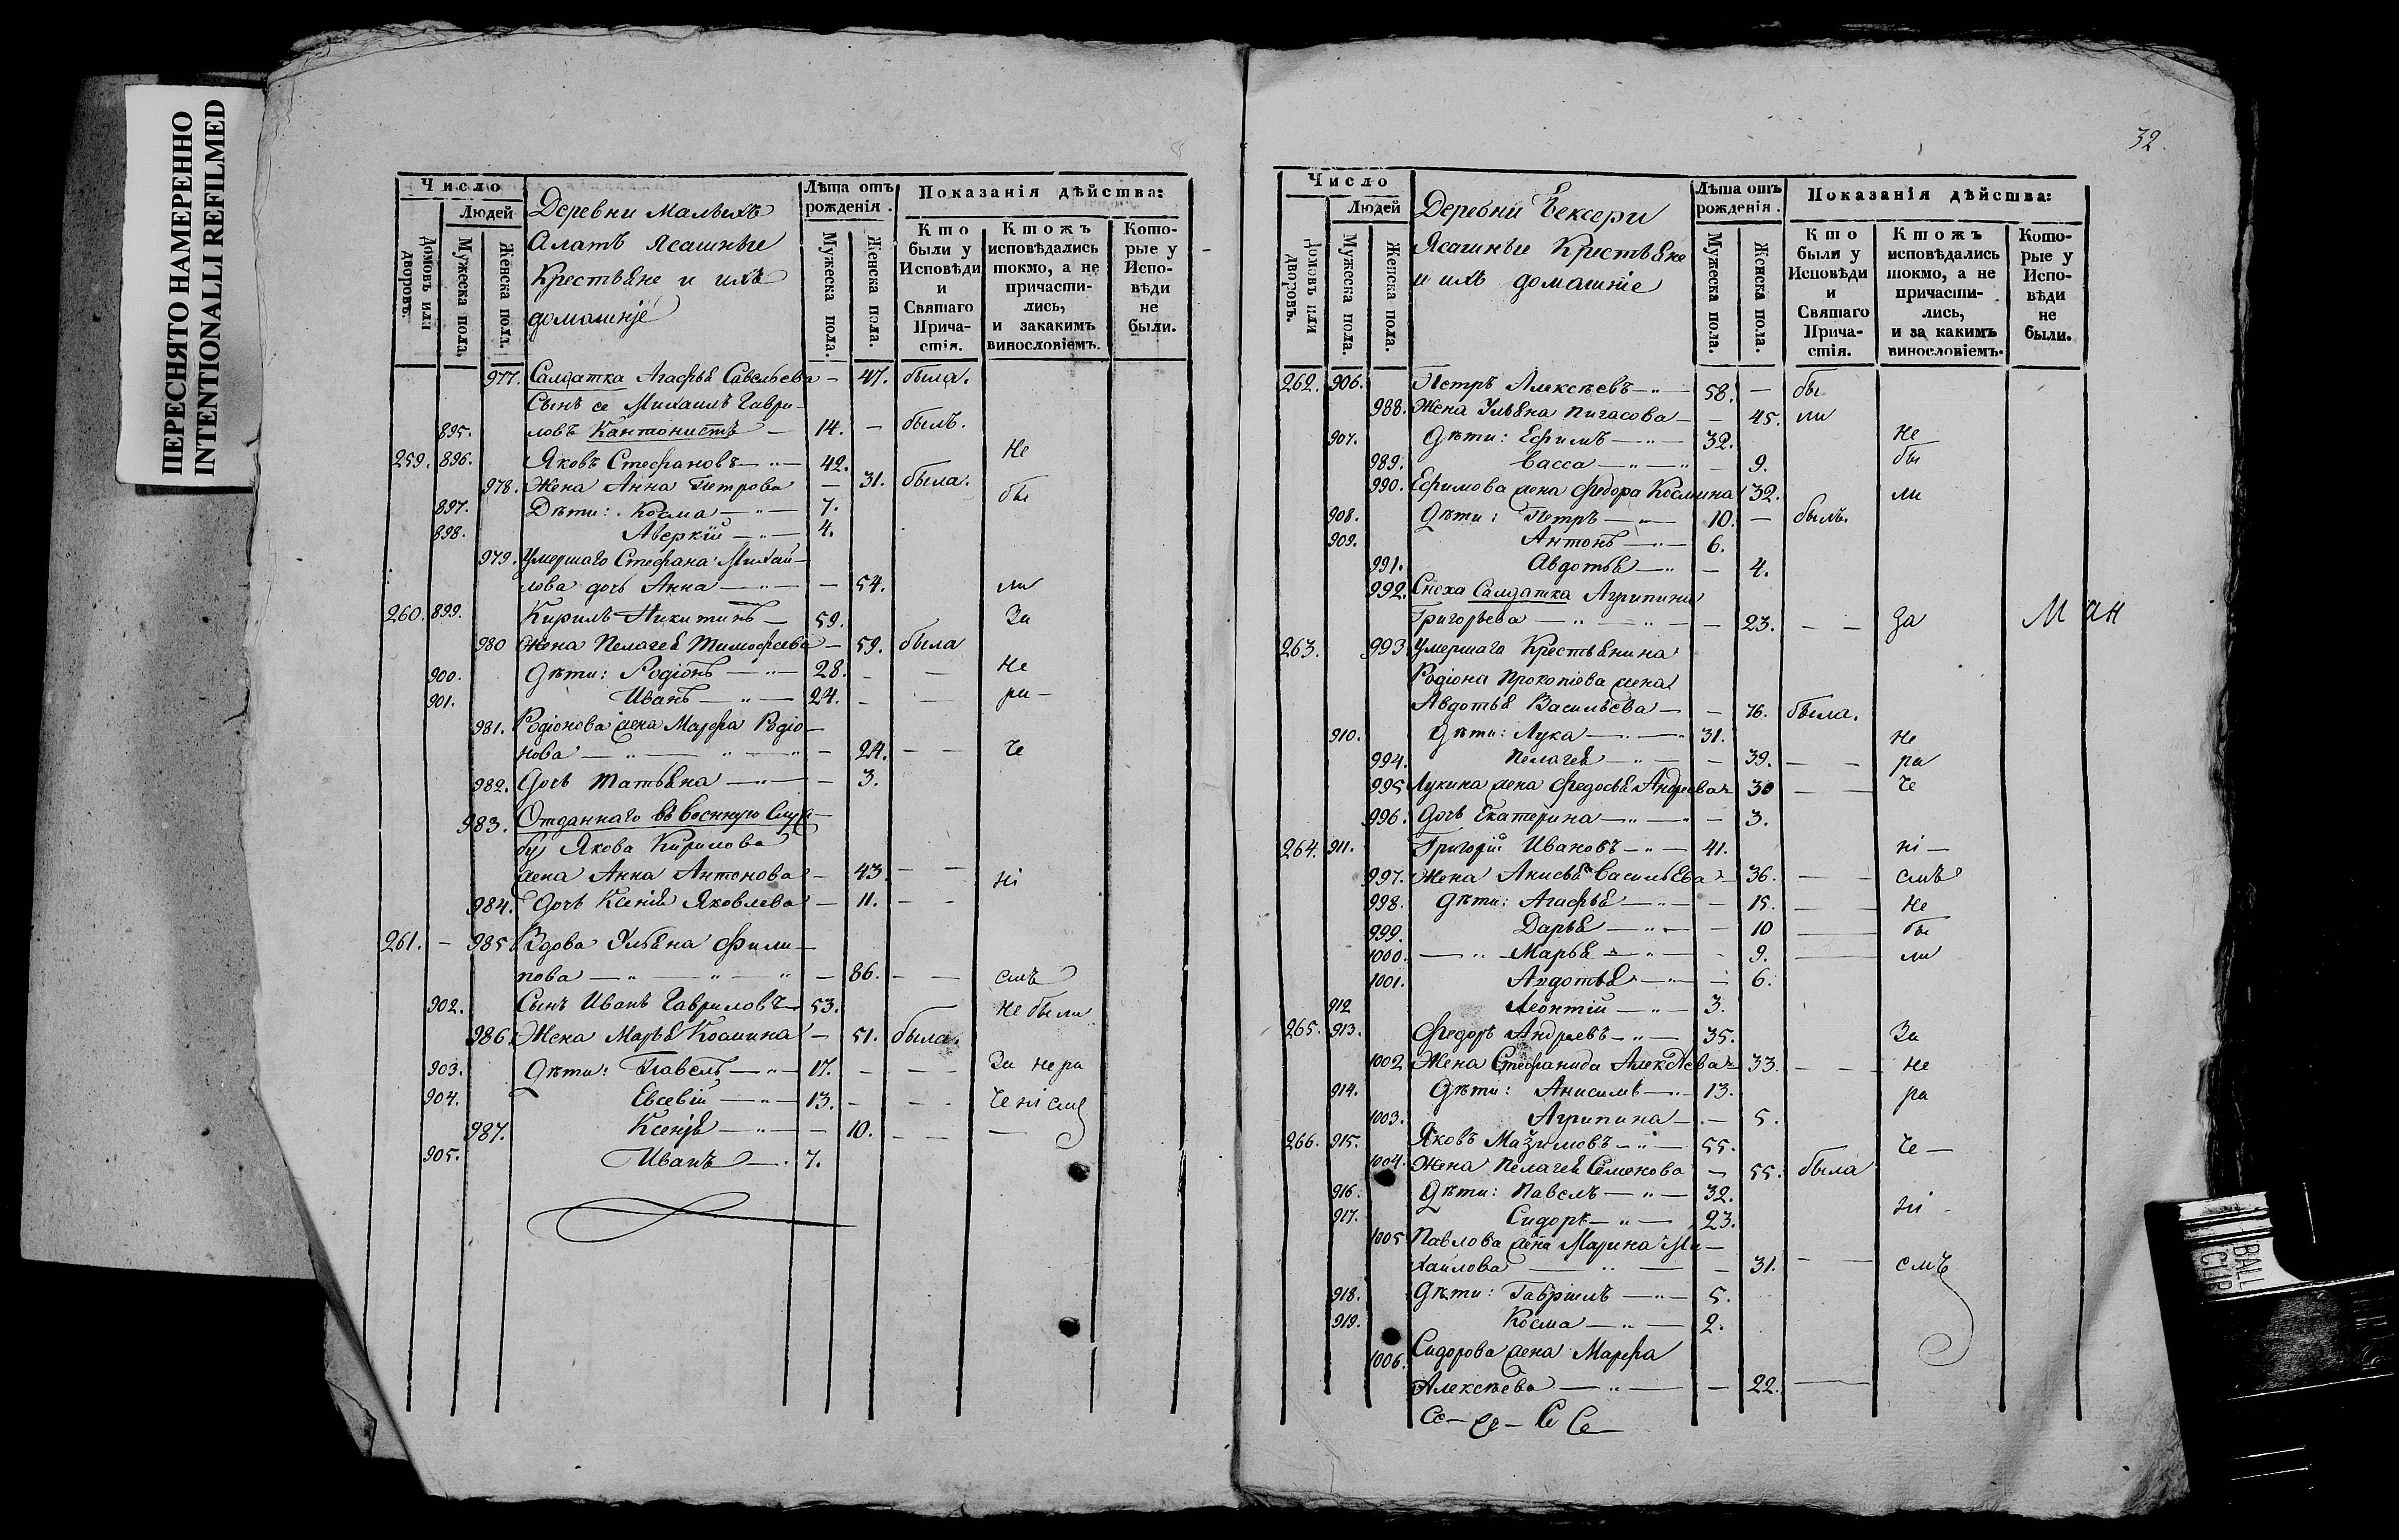 ПЕРЕСНЯТО НАМЕРЕННО
INTENTIONALLI REFILMED
Число
Людей
Домовъ или дворовъ.
Мужеска пола.
Женска пола.
Деревни Малыхъ
Алатъ Ясашные
Крестьяне и ихъ
домашніе
Лѣта отъ рожденія.
Мужеска пола.
Женска пола.
Показанія дѣйства:
Кто были у Исповѣди и Святаго Причастія.
Ктожъ исповѣдались токмо, а не причастились, и закакимъ винословіемъ.
Которые у Исповѣди не были.
977. Салдатка Агафья Савельева — 47. была.
Сынъ ее Михаилъ Гаври-
895. ловъ Кантонистъ — 14. — былъ.
259. 896. Яковъ Стефановъ — 42. Не
978. Жена Анна Петрова — 31. была. бы
897. Дѣти: Косма — 7.
898. Аверкій — 4.
979. Умершаго Стефана Михай-
лова дочь Анна — 54. ли
260. 899. Кирилъ Никитинъ — 59. За
980 Жена Пелагея Тимофеева — 59. была
900. Дѣти: Родіонъ — 28. Не
901. Иванъ — 24. ра-
981. Родіонова жена Марфа Родіо-
нова — 24. че
982. Дочь Татьяна — 3.
983. Отданнаго въ военную служ-
бу Якова Кирилова
жена Анна Антонова — 43. ні
984. Дочь Ксенія Яковлева — 11.
261. — 985 Вдова Ульяна Фили-
пова — 86. — смъ
902. Сынъ Иванъ Гавриловъ 53. Не были
986. Жена Марья Космина — 51. была.
903. Дѣти: Павелъ — 17. За нера
904. Евсевій — 13. чені смъ
987. Ксенія — 10.
905. Иванъ — 7.
32.
Число
Людей
Домовъ или дворовъ.
Мужеска пола.
Женска пола.
Деревни Бексери
Ясашные Крестьяне
и ихъ домашніе
Лѣта отъ рожденія.
Мужеска пола.
Женска пола.
Показанія дѣйства:
Кто были у Исповѣди и Святаго Причастія.
Ктожъ исповѣдались токмо, а не причастились, и за какимъ винословіемъ.
Которые у Исповѣди не были.
262. 906. Петръ Алексѣевъ — 58. — бы
988. Жена Ульяна Пигасова — 45. ли
907. Дѣти: Ефимъ — 32. Не
989. Васса — 9. бы
990. Ефимова жена Федора Космина 32. ли
908. Дѣти: Петръ — 10. — былъ.
909. Антонъ — 6.
991. Авдотья — 4.
992. Сноха Салдатка Агрипина
Григорьева — 23. — За М ан
263. 993. Умершаго Крестьянина
Родіона Прокопіева жена
Авдотья Васильева — 76. была.
910. Дѣти: Лука — 31. Не
994. Пелагея — 39. — ра
995 Лукина жена Федосья Андреева 30 — че
996. Дочь Екатерина — 3.
264. 911. Григорій Ивановъ — 41. ні —
997. Жена Анисья Васильева — 36. — смъ
998. Дѣти: Агафья — 15. — Не
999. Дарья — 10 — бы
1000. Марья — 9. — ли
1001. Авдотья — 6.
912 Леонтій — 3.
265. 913. Федоръ Андреевъ — 35. За
1002 Жена Стефанида Алексѣева 33. — не
914. Дѣти: Анисимъ — 13. ра
1003. Агрипина — 5.
266. 915. Яковъ Мазимовъ — 55. че —
1004. Жена Пелагея Семенова — 55. была
916. Дѣти: Павелъ — 32.
917. Сидоръ — 23. ні
1005 Павлова жена Марина Ми-
хаилова — 31. — смъ
918. Дѣти: Гавріилъ — 5.
919. Косма — 2.
1006. Сидорова жена Марфа
Алексѣева — 22. —
BALL CLIP